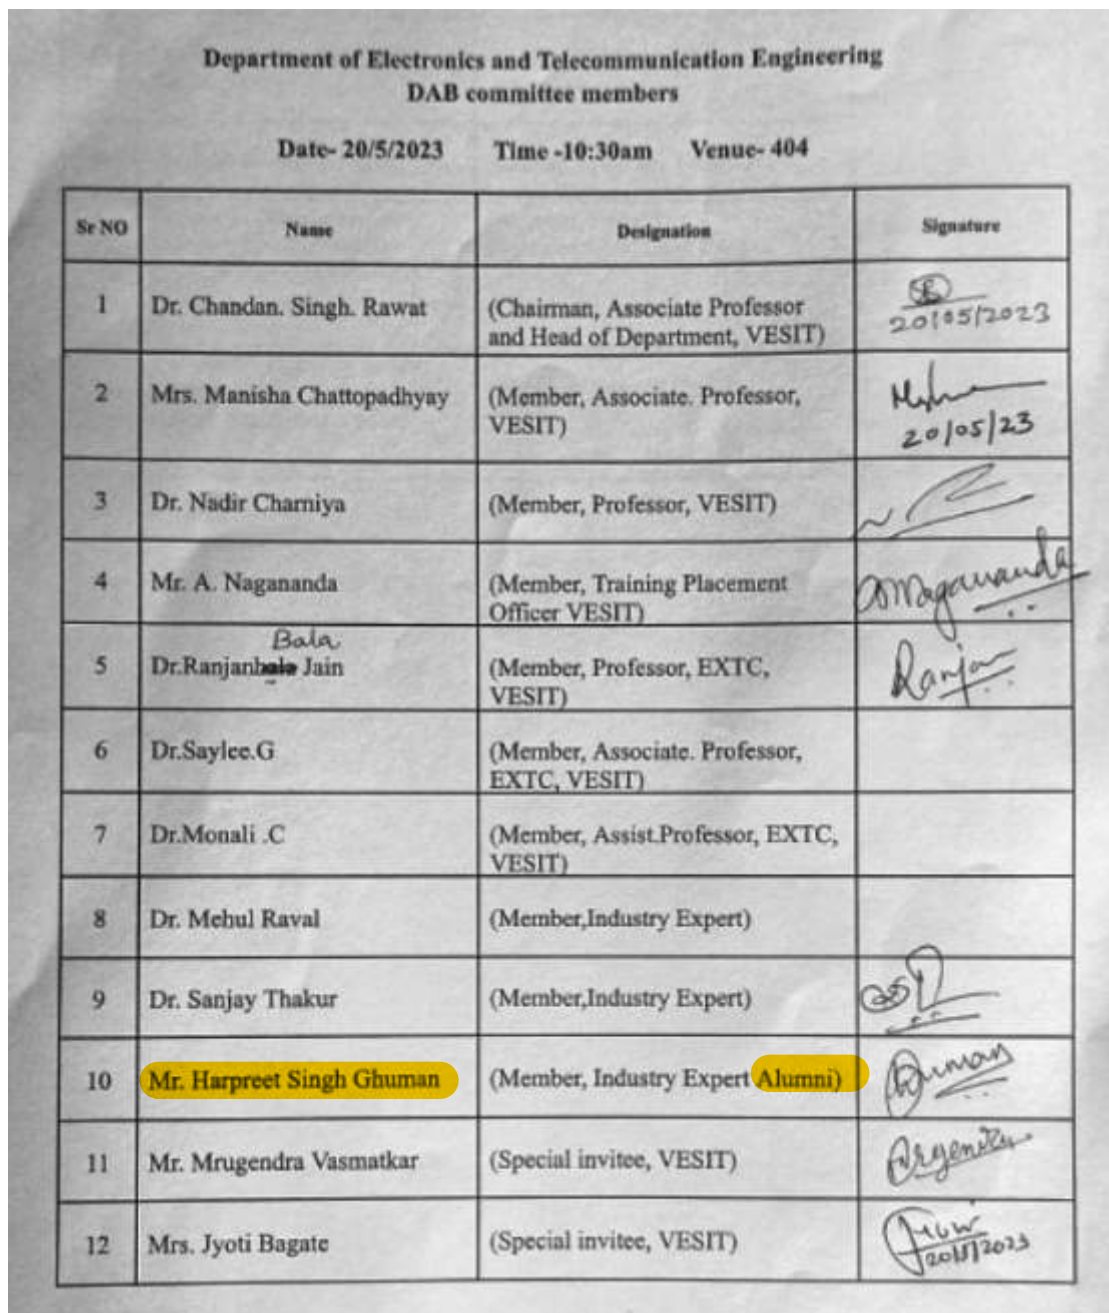 Department of Electronics and Telecommunication Engineering
DAB committee members
Date- 20/5/2023 Time -10:30am Venue- 404
Sr NO Name Designation Signature
1 Dr. Chandan. Singh. Rawat (Chairman, Associate Professor
and Head of Department, VESIT)
20/05/2023
2 Mrs. Manisha Chattopadhyay (Member, Associate. Professor,
VESIT)
20/05/23
3 Dr. Nadir Charniya (Member, Professor, VESIT)
4 Mr. A. Nagananda (Member, Training Placement
Officer VESIT)
Nagananda
Bala
5 Dr.Ranjanbala Jain (Member, Professor, EXTC,
VESIT)
Ranjan
6 Dr.Saylee.G (Member, Associate. Professor,
EXTC, VESIT)
7 Dr.Monali .C (Member, Assist.Professor, EXTC,
VESIT)
8 Dr. Mehul Raval (Member,Industry Expert)
9 Dr. Sanjay Thakur (Member,Industry Expert)
10 Mr. Harpreet Singh Ghuman (Member, Industry Expert Alumni)
11 Mr. Mrugendra Vasmatkar (Special invitee, VESIT)
12 Mrs. Jyoti Bagate (Special invitee, VESIT)
20/5/2023